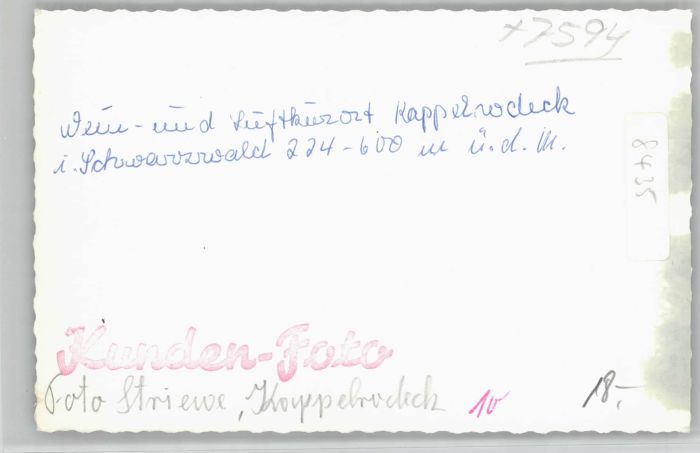 +7594
Wein- und Luftkurort Kappelrodeck
i. Schwarzwald 224-600 m ü.d.M.
8435
Kunden-Foto
Foto Striewe, Kappelrodeck
10
18.-